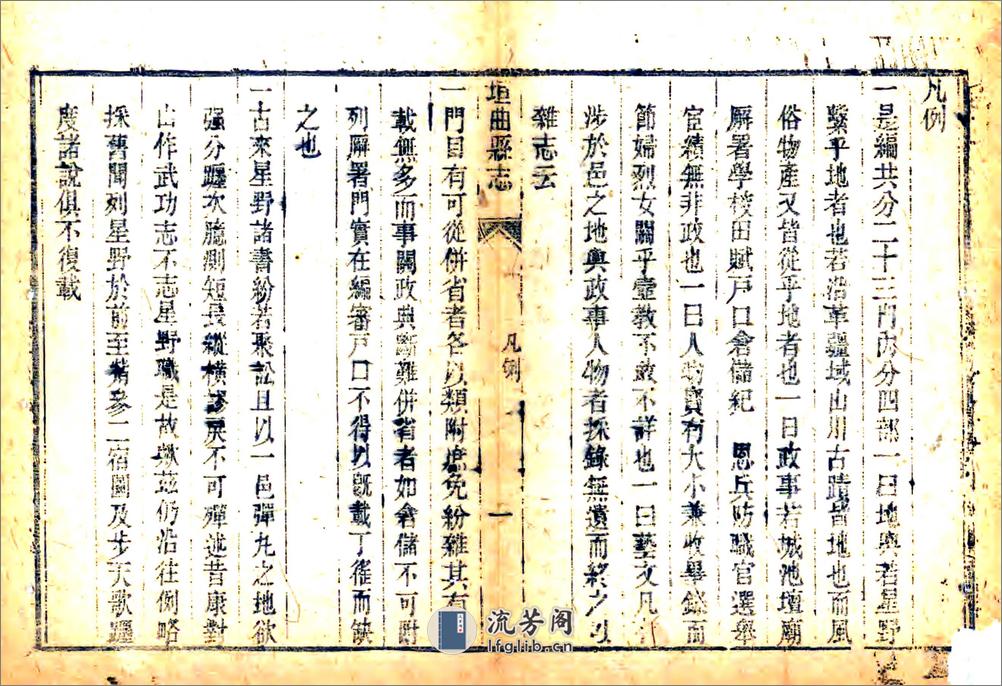 凡例
一是編共分二十三門內分四部一曰地輿若星野
繫乎地者也若沿革疆域山川古蹟皆地也而風
俗物產又皆從乎地者也一曰政事若城池壇廟
廨署學校田賦戶口倉儲紀　恩兵防職官選舉
宦績無非政也一曰人物賢有大小兼收畢錄而
節婦烈女關乎壼教不敢不詳也一曰藝文凡
涉於邑之地輿政事人物者採錄無遺而終之以
雜志云
垣曲縣志
凡例
一
一門目有可從併省者各以類附庶免紛雜其有
載無多而事關政典斷難併省者如倉儲不可附
列廨署門實在編審戶口不得以旣載丁徭而缺
之也
一古來星野諸書紛若聚訟且以一邑彈丸之地欲
强分躔次臆測短長縱橫謬戾不可殫述昔康對
山作武功志不志星野職是故歟茲仍沿往例略
採舊聞列星野於前至觜參二宿圖及步天歌躔
度諸說俱不復載
流芳阁
lfglib.cn